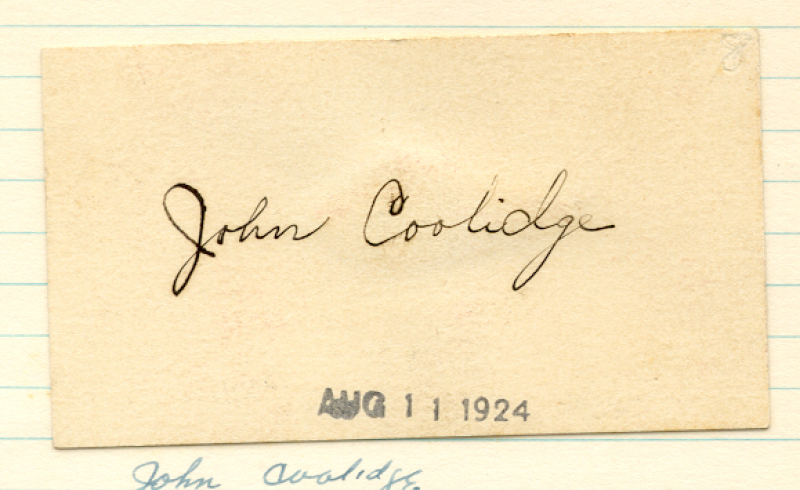 John Coolidge
AUG 11 1924
John Coolidge